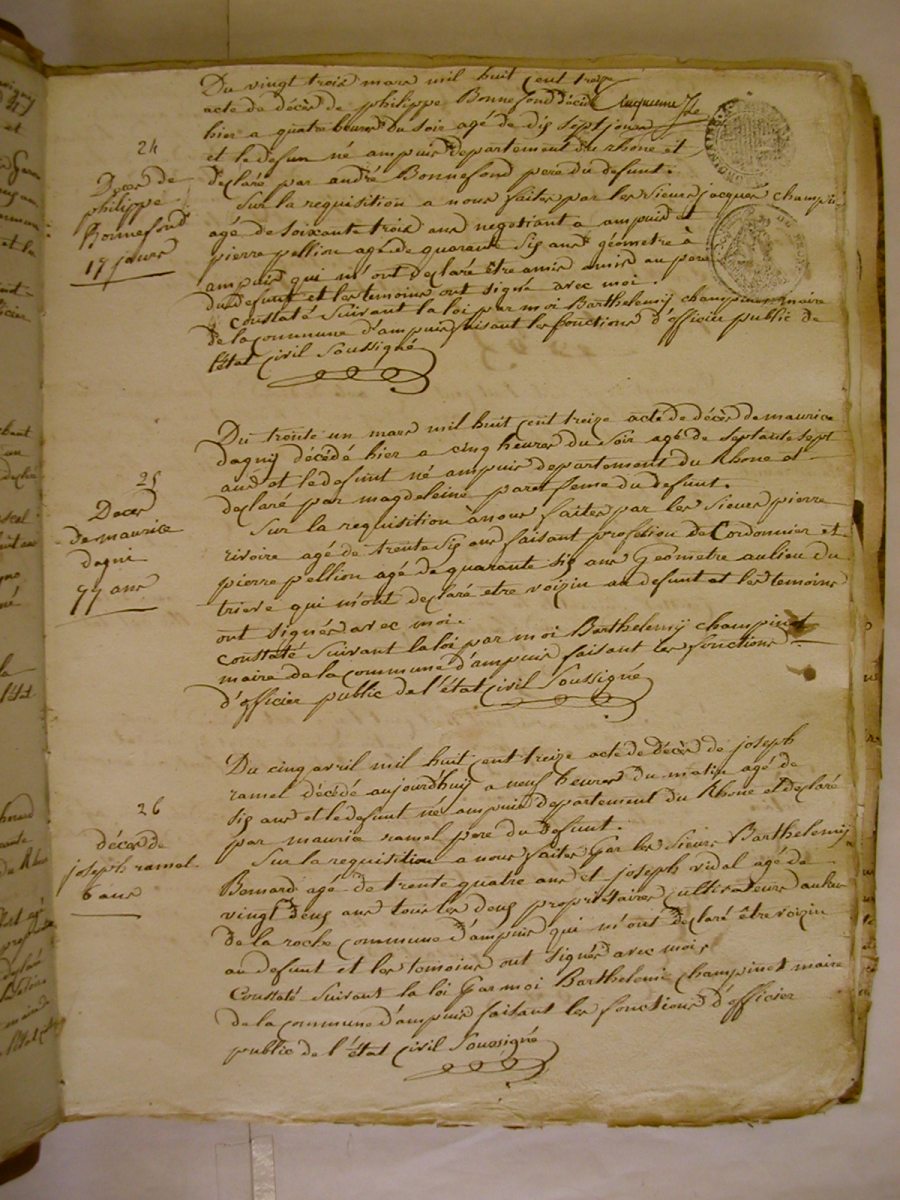 Du vingt trois mars mil huit cent treize
acte de décès de philippe Bonnefond décédé Cinquieme f.le
hier a quatre heures du soir agé de dis sept jours
et le defun né ampuis departement du rhône et
declaré par andré Bonnefond pere du defunt.
Sur la requisition a nous faites par les sieurs jacques champin
agé de soixante trois ans negotiant a ampuis et
pierre pellion agé de quarante sis ans géometre à
ampuis qui m'ont declaré être amis amis au pere
du defunt et les temoins ont signé avec moi.
Constaté suivant la loi par moi Barthelemy champinot maire
de la commune d'ampuis faisant les fonctions d'officier public de
l'état Civil Soussigné
24
Deces de
philippe
Bonnefond
17 jours
Du trente un mars mil huit cent treize acte de décès de maurice
dagnij décédé hier a cinq heures du soir agé de septante sept
ans et le defunt né ampuis departement du Rhône et
declaré par magdeleine paret feme du defunt.
Sur la requisition à nous faites par les sieurs pierre
rivoire agé de trente sis ans faisant profession de Cordonnier et
pierre pellion agé de quarante sis ans Géometre au lieu du
trieve qui m'ont declaré etre voizin au defunt et les temoins
ont signés avec moi.
constaté suivant la loi par moi Barthelemij champinot
maire de la commune d'ampuis faisant les fonctions
d'officier public de l'état Civil Soussigné
25
Deces
de maurice
dagni
77 ans
Du cinq avril mil huit cent treize acte de décès de joseph
ramel décédé aujourdhuij a neuf heures du matin agé de
sis ans et le defunt né ampuis departement du Rhône et declaré
par maurice ramel pere du defunt.
Sur la requisition a nous faites par les sieurs Barthelemij
Bernard agé de trente quatre ans et joseph vidal agé de
vingt deus ans tous les deus propriétaires cultivateurs au lieu
de la roche commune d'ampuis qui m'ont declaré être voizin
au defunt et les temoins ont signés avec moi,
Constaté suivant la loi par moi Barthelemi champinot maire
de la commune d'ampuis faisant les fonctions d'officier
public de l'état Civil Soussigné
26
décès de
joseph ramel
6 ans